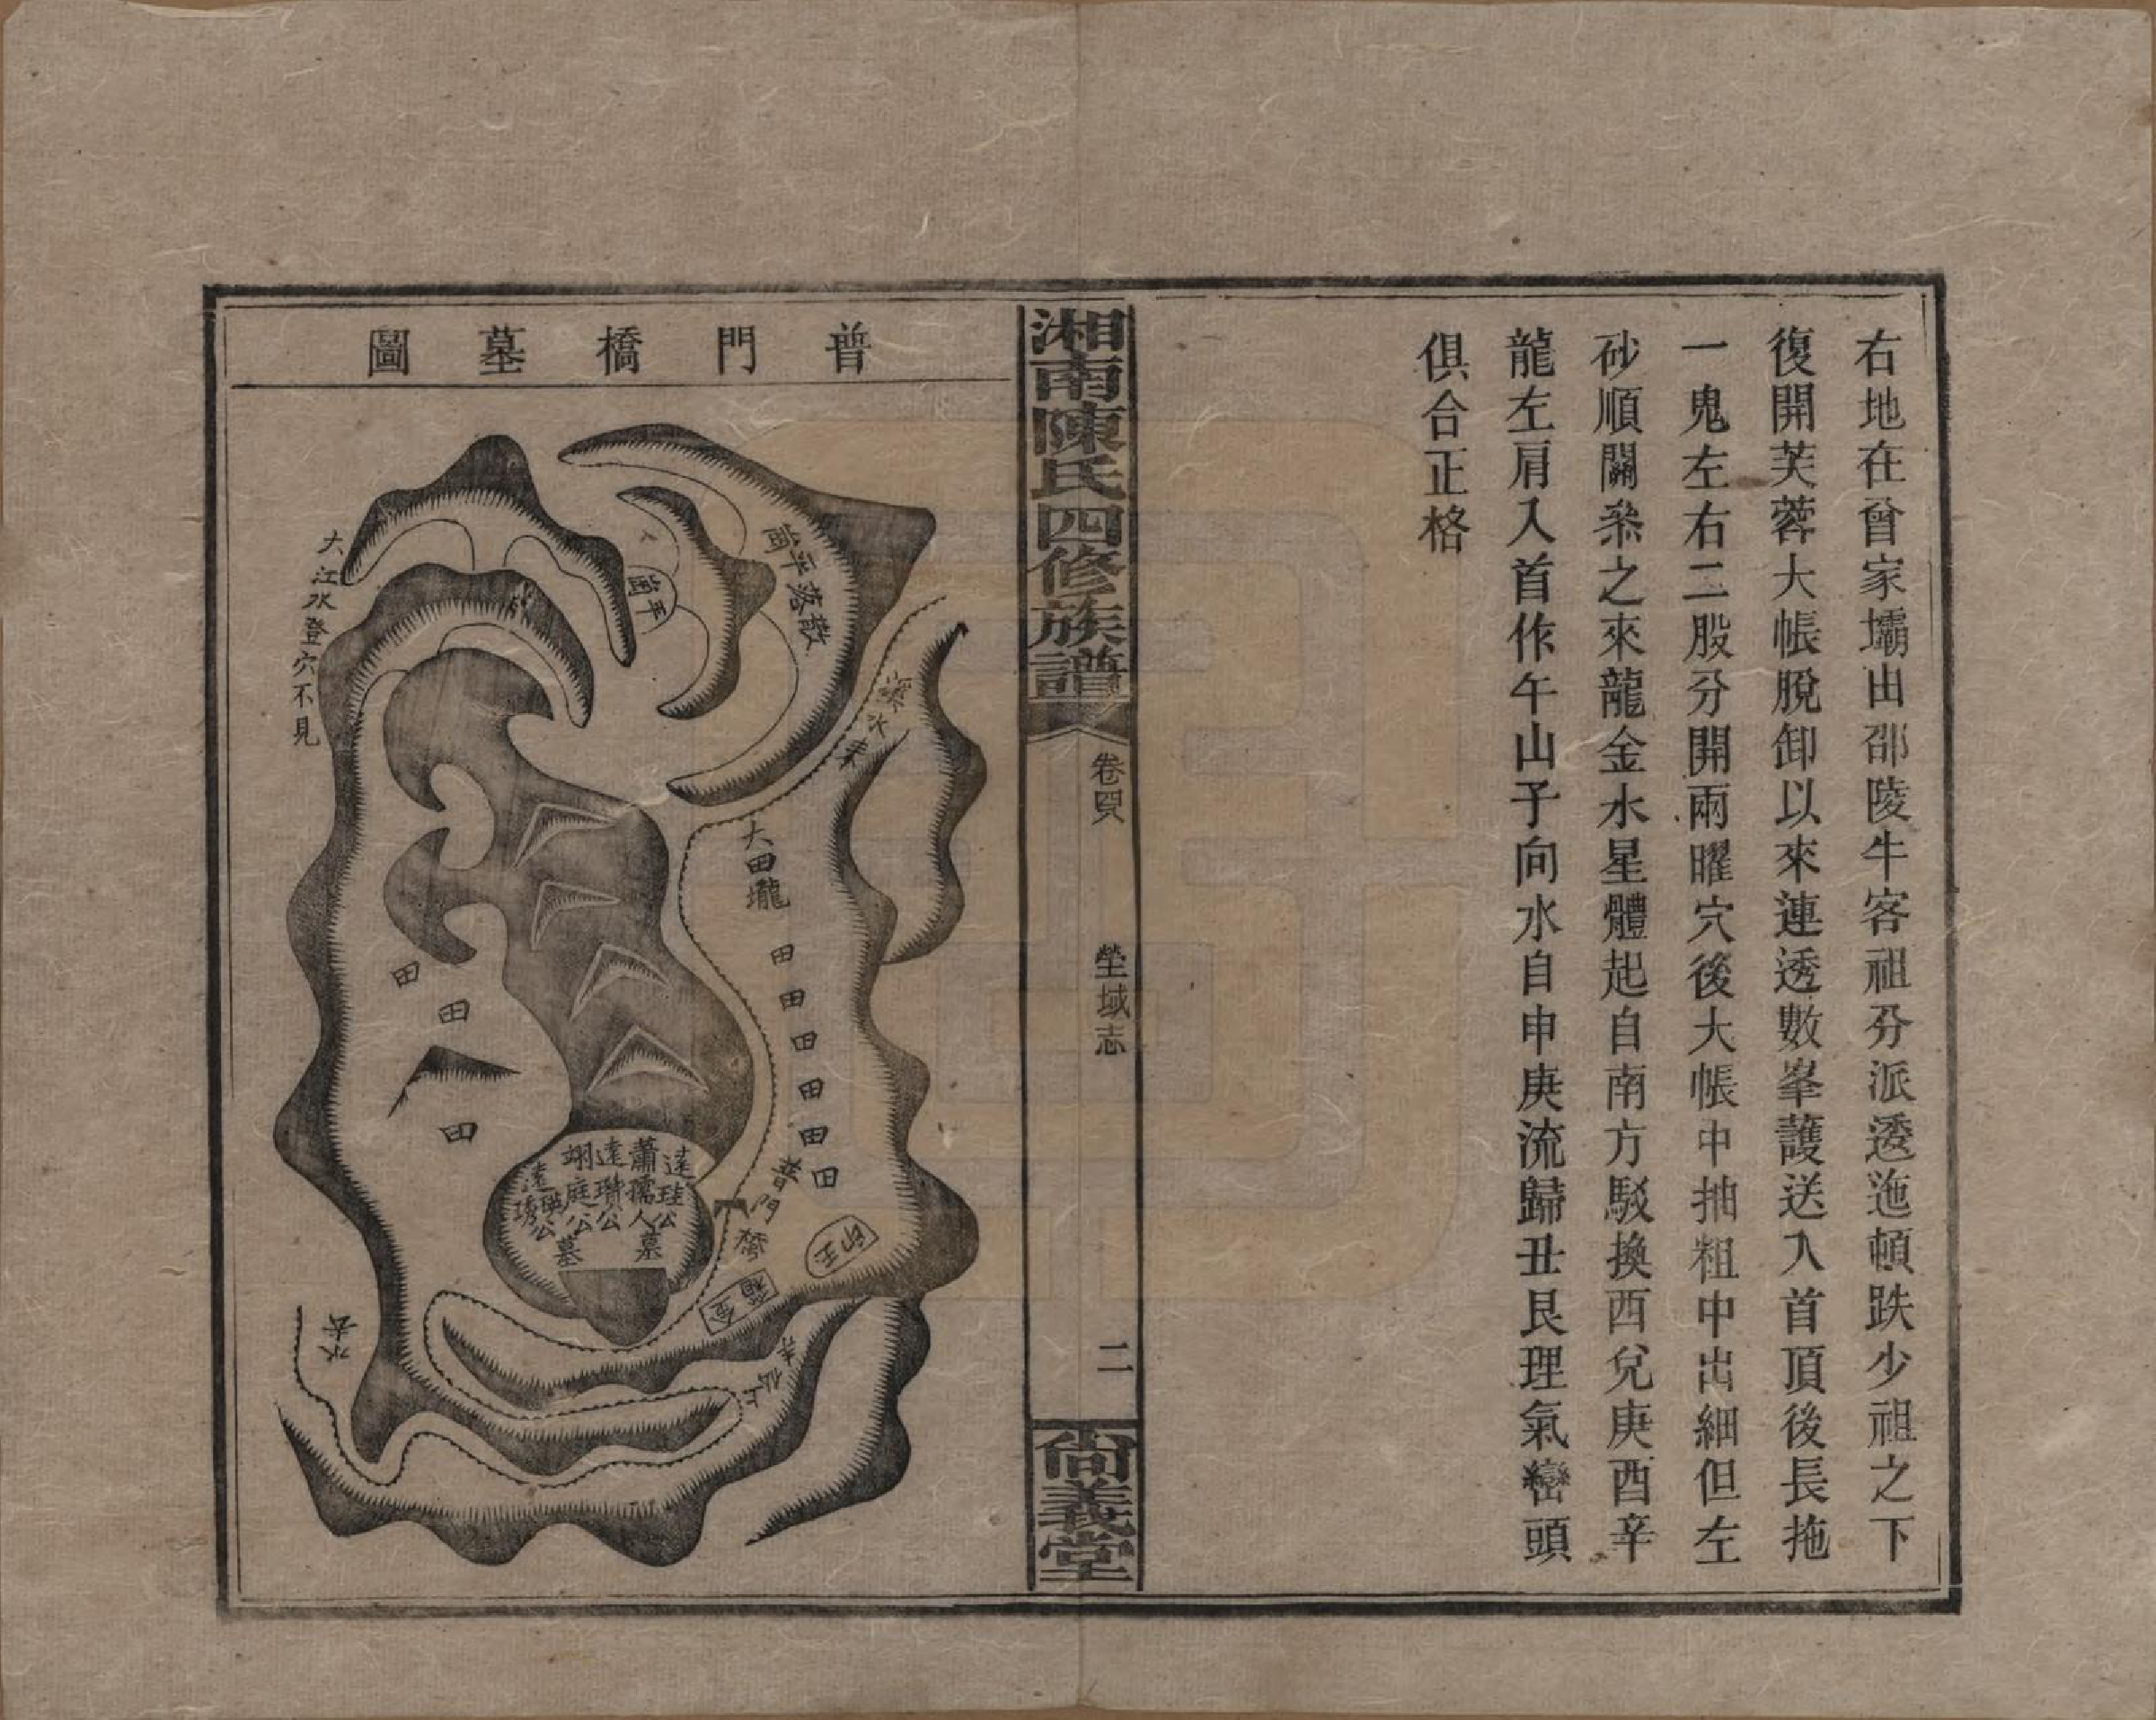 右地在曾家壩由邵陵牛客祖分派透迤頓跌少祖之下
復開芙蓉大帳脫卸以來連透數峯護送入首頂後長拖
一鬼左右二股分開兩曜穴後大帳中抽粗中出細但左
砂順關桑之來龍金水星體起自南方駁換西兌庚酉辛
龍左肩入首作午山子向水自申庚流歸丑艮理氣巒頭
俱合正格
湘南陳氏四修族譜
卷四
塋域志
二
尙義堂
普門橋墓圖
崗平落散
崗平
水來
大田壠
田
田
田
田
田
田
普門橋
印玉
箱金
達珪公
蕭孺人墓
達瓚公
翊庭公墓
達瑛公
琇
田
田
田
大江水登穴不見
水去